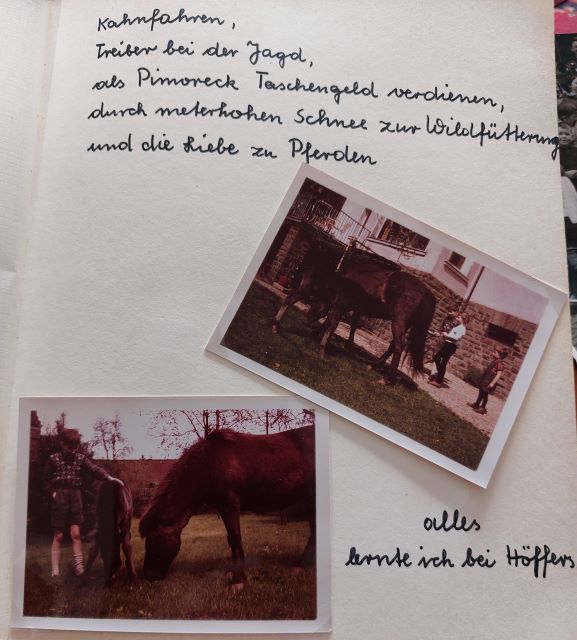 Kahnfahren,
Treiber bei der Jagd,
als Pimoreck Taschengeld verdienen,
durch meterhohen Schnee zur Wildfütterung
und die Liebe zu Pferden
alles
lernte ich bei Höffers